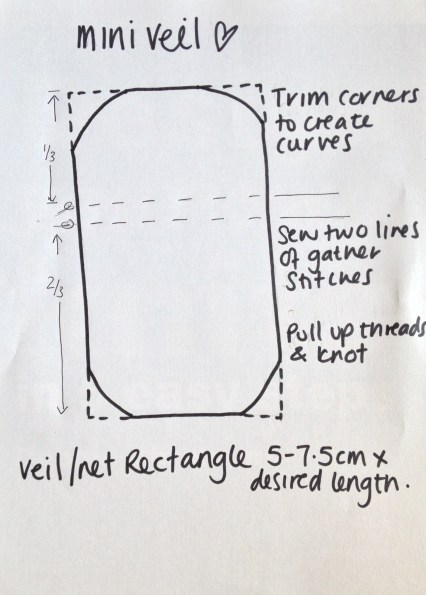 mini veil ♡
Trim corners
to create
curves
1/3
Sew two lines
of gather
stitches
2/3
Pull up threads
& knot
veil/net Rectangle 5-7.5cm x
desired length.